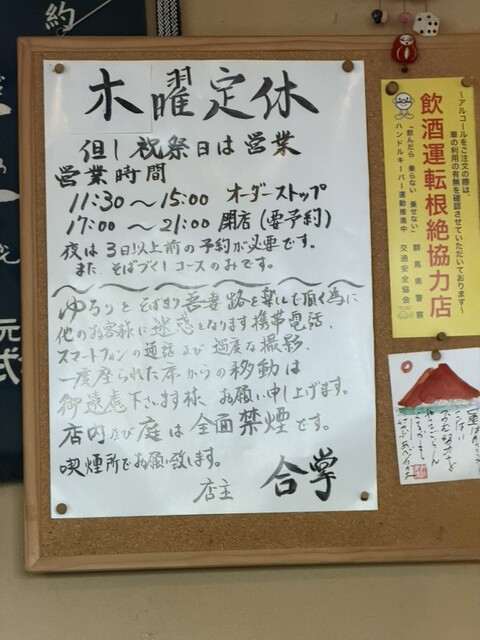 木曜定休
但し祝祭日は営業
営業時間
11:30～15:00 オーダーストップ
17:00～21:00 閉店(要予約)
夜は3日以上前の予約が必要です。
また、そばづくしコースのみです。
ゆるりとそばきり吾妻路を楽しんで頂く為に
他のお客様に迷惑となります携帯電話、
スマートフォンの通話及び過度な撮影、
一度座られた席からの移動は
御遠慮下さいます様、お願い申し上げます。
店内及び庭は全面禁煙です。
喫煙所でお願い致します。
店主 合掌
～アルコールをご注文の際は、
車の利用の有無を確認させていただいております～
飲酒運転根絶協力店
「飲んだら 乗らない 乗せない」
ハンドルキーパー運動推進中
群馬県警察
交通安全協会
約
元
式